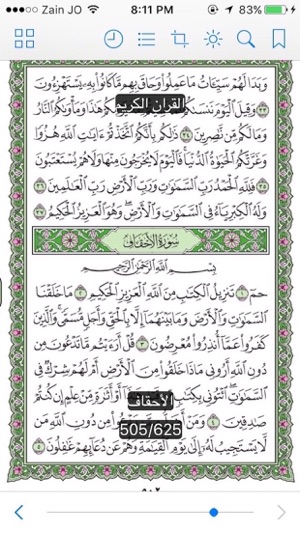 Zain JO 8:11 PM 83%
وَبَدَا لَهُمْ سَيِّئَاتُ مَا عَمِلُوا۟ وَحَاقَ بِهِم مَّا كَانُوا۟ بِهِۦ يَسْتَهْزِءُونَ
٣٣ وَقِيلَ ٱلْيَوْمَ نَنسَىٰكُمْ كَمَا هَٰذَا وَمَأْوَىٰكُمُ ٱلنَّارُ
القرآن الكريم
وَمَا لَكُم مِّن نَّٰصِرِينَ ٣٤ ذَٰلِكُم بِأَنَّكُمُ ٱتَّخَذْتُمْ ءَايَٰتِ ٱللَّهِ هُزُوًا
وَغَرَّتْكُمُ ٱلْحَيَوٰةُ ٱلدُّنْيَا فَٱلْيَوْمَ لَا يُخْرَجُونَ مِنْهَا وَلَا هُمْ يُسْتَعْتَبُونَ
٣٥ فَلِلَّهِ ٱلْحَمْدُ رَبِّ ٱلسَّمَٰوَٰتِ وَرَبِّ ٱلْأَرْضِ رَبِّ ٱلْعَٰلَمِينَ ٣٦
وَلَهُ ٱلْكِبْرِيَآءُ فِى ٱلسَّمَٰوَٰتِ وَٱلْأَرْضِ وَهُوَ ٱلْعَزِيزُ ٱلْحَكِيمُ ٣٧
سُورَةُ الأَحْقَافِ
بِسْمِ ٱللَّهِ ٱلرَّحْمَٰنِ ٱلرَّحِيمِ
حمٓ ١ تَنزِيلُ ٱلْكِتَٰبِ مِنَ ٱللَّهِ ٱلْعَزِيزِ ٱلْحَكِيمِ ٢ مَا خَلَقْنَا
ٱلسَّمَٰوَٰتِ وَٱلْأَرْضَ وَمَا بَيْنَهُمَآ إِلَّا بِٱلْحَقِّ وَأَجَلٍ مُّسَمًّى وَٱلَّذِينَ
كَفَرُوا۟ عَمَّآ أُنذِرُوا۟ مُعْرِضُونَ ٣ قُلْ أَرَءَيْتُم مَّا تَدْعُونَ مِن
دُونِ ٱللَّهِ أَرُونِى مَاذَا خَلَقُوا۟ مِنَ ٱلْأَرْضِ أَمْ لَهُمْ شِرْكٌ فِى
ٱلسَّمَٰوَٰتِ ٱئْتُونِى بِكِتَٰبٍ أَوْ أَثَٰرَةٍ مِّنْ عِلْمٍ إِن كُنتُمْ
الأحقاف
صَٰدِقِينَ ٤ وَمَنْ أَضَلُّ مِن دُونِ ٱللَّهِ مَن
505/625
لَّا يَسْتَجِيبُ لَهُۥٓ إِلَىٰ يَوْمِ ٱلْقِيَٰمَةِ وَهُمْ عَن دُعَآئِهِمْ غَٰفِلُونَ ٥
٥٠٢